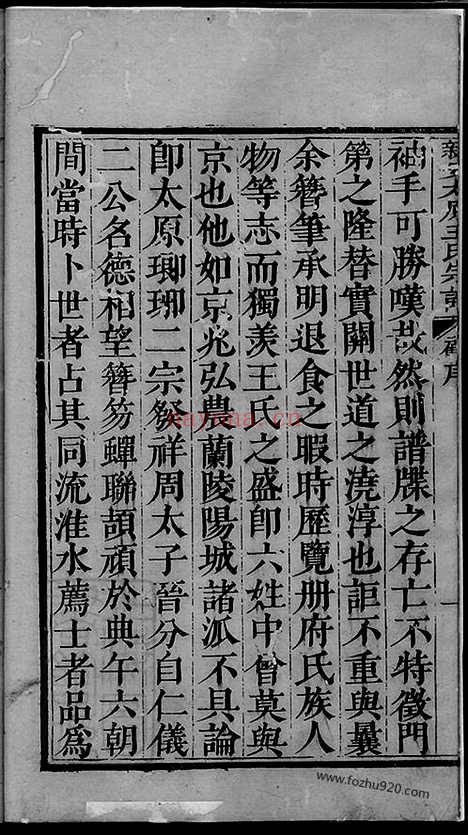 袖手可勝嘆哉然則譜牒之存亡不特徵門
第之隆替實關世道之澆淳也詎不重與曩
余簪筆承明退食之暇時歷覽册府氏族人
物等志而獨羨王氏之盛卽六姓中曾莫與
京也他如京兆弘農蘭陵陽城諸派不具論
卽太原瑯琊二宗發祥周太子晉分自仁儀
二公名德相望簪笏蟬聯頡頏於典午六朝
間當時卜世者占其同流淮水薦士者品爲
nayona.cn
www.fozhu920.com